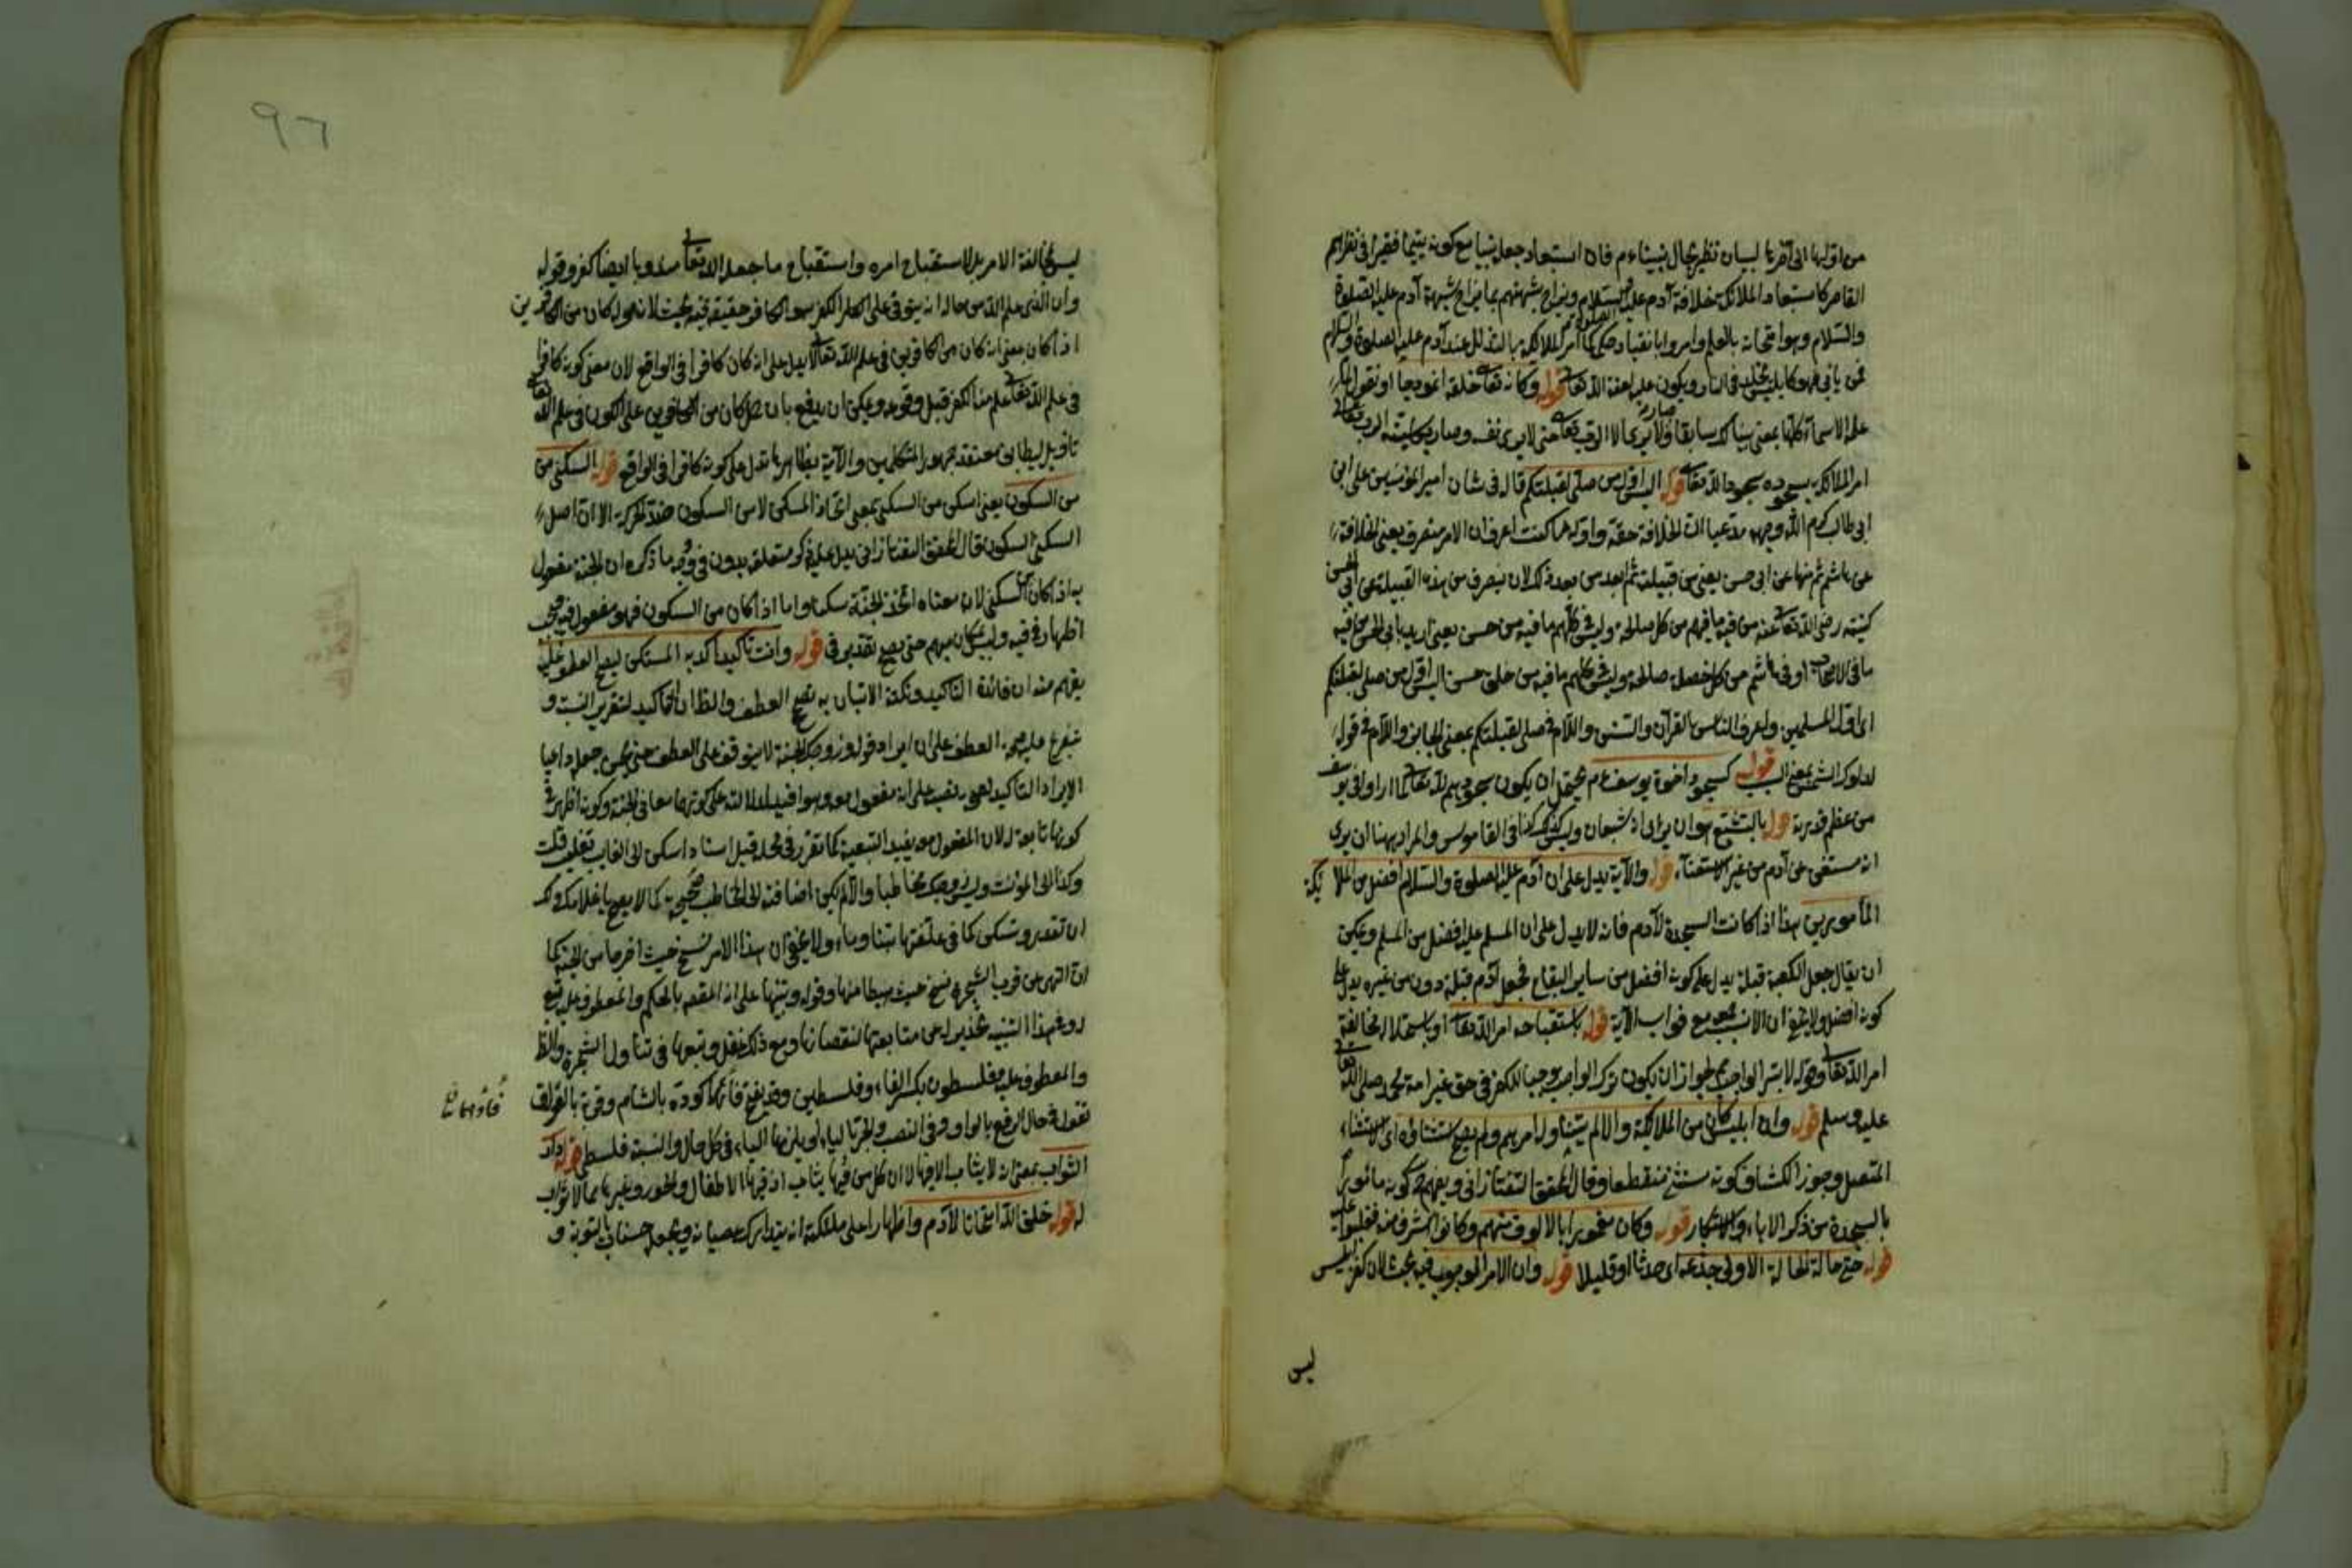 من اولها الى آخرها لبيان نظير لحال نبينا عم فان استبعاد جعله نبيا مع كونه يتيما فقيرا في نظرهم
القاصر كاستبعاد الملائكة خلافة آدم عليه السلام ويزاح شبهتهم بما يزاح شبهة آدم عليه الصلوة
والسلام وهو امتحانه بالعلم وامروا بانقياد حكمه كما امر الملائكة بالتذلل عند آدم عليه الصلوة والسلام
فمن يأبى فهو كابليس مخلد في النار ويكون عليه لعنة الله تعالى قوله وكانه تعالى خلقه انموذجا او نقول
علم الاسماء كلها بمعنى سابقا ولا يرى الا الرب تعالى حتى لا يرى نفسه وصار الرب تعالى
امر الملائكة بسجوده سجود الله تعالى قوله اليس اول من صلى لقبلتكم قال في شان امير المؤمنين على ابن
ابي طالب كرم الله وجهه مدعيا ان الخلافة حقه واوله ما كنت اعرف ان الامر منصرف يعنى الخلافة
عن هاشم ثم منها عن ابي حسن يعنى من قبيلته ثم ابعد من بعد ذلك لان ينصرف من هذه القبيلة عن ابي الحسن
كنيته رضى الله تعالى عنه من فيه ما فيهم من كل صالحة وليس في كلهم ما فيه من حسن يعنى اريد بابي الحسن من فيه
ما في الاصحاب او في هاشم من كل خصلة صالحة وليس في كلهم ما فيه من خلق حسن اليس اول من صلى لقبلتكم
اى اول المسلمين واعرف الناس بالقرآن والسنن واللام في صلى لقبلتكم بمعنى الجانب واللام في قوله
لدلوك الشمس بمعنى السبب قوله كسجود اخوة يوسف عم يحتمل ان يكون سجودهم لله تعالى لما راوا في يوسف
من عظم قدرته قوله بالتشبع هو ان يرى انه شبعان وليس كذلك كذا في القاموس والمراد ههنا ان يرى
انه مستغن عن آدم من غير الاستغناء قوله والآية يدل على ان آدم عليه الصلوة والسلام افضل من الملائكة
المأمورين هذا اذا كانت السجدة لآدم فانه لا يدل على ان المسلم عليه افضل من المسلم ويمكن
ان يقال جعل الكعبة قبلة يدل على كونه افضل من سائر البقاع فجعل آدم قبلة دون من غيره يدل على
كونه افضل ولا يخفى ان الانسب بجميع فوات الآية قوله باستقباحه امر الله تعالى او باستحلال المخالفة
امر الله تعالى وقوله لا بترك الواجب لجواز ان يكون ترك الواجب موجبا للكفر في حق غير امة محمد صلى الله تعالى
عليه وسلم قوله وان ابليس كان من الملائكة والا لم يتناوله امرهم ولم يصح استثناؤه اى الاستثناء
المتصل وجوز الكشاف كونه مستثنى منقطعا وقال المحقق التفتازانى ويفهم كونه مأمورا
بالسجدة من ذكر الاباء والاستكبار قوله وكان مغمورا بالالوف منهم وكانوا اشرف منه فغلبوا عليه
قوله حتى حالة الحالة الاولى جذعة اى حدثا او قليلا قوله وان الامر للوجوب فيه بحث لان كفر ابليس
ليس
٩٦
ليس لمخالفة الامر بل لاستقباح امره واستقباح ما جعل الله تعالى مندوبا ايضا كفر وقوله
وان الذى علم الله من حاله انه يتوفى على الكفر هو الكافر حقيقة فيه بحث لان قوله كان من الكافرين
اذا كان معنى انه كان من الكافرين في علم الله تعالى لا يدل على انه كان كافرا في الواقع لان معنى كونه كافرا
في علم الله تعالى علم منه الكفر قبل وقوعه ويمكن ان يدفع بان حمل كان من الكافرين على الكون في علم الله تعالى
تأويل ليطابق معتقد جمهور المتكلمين والآية بظاهرها تدل على كونه كافرا في الواقع قوله السكنى من
من السكون يعنى اسكن من السكنى بمعنى اتخاذ المسكن لا من السكون ضد الحركة الا ان اصل
السكنى السكون قال المحقق التفتازانى يدل عليه ذكر متعلقه بدون في وجه ما ذكره ان الجنة مفعول
به اذا كان من السكنى لان معناه اتخذ الجنة سكنا واما اذا كان من السكون فهو مفعول فيه يجب
اظهار في فيه وليس مكان مبهم حتى يصح تقدير في قوله وانت تأكيد اكد به المستكن ليصح العطف عليه
يفهم منه ان فائدة التأكيد ونكتة الاتيان به تصحيح العطف والظ ان التأكيد لتقرير النسبة و
يتفرع عليه صحة العطف على ان ايراد قوله وزوجك الجنة لا يتوقف على العطف حتى يجب جعله داعيا
الايراد التأكيد لصحة نصبه على انه مفعول معه وهو افيد لدلالته على كونهما معا في الجنة وكونه اظهر في
كونها تابعة له لان المفعول معه يفيد التبعية كما تقرر في محله قيل اسناد اسكن الى الغائب تغليب قلت
وكذا الى المؤنث وليس زوجك مخاطبا والا لم يكن اضافته الى المخاطب صحيحة كما لا يصح يا غلامك ولك
ان تقدر وتسكن كما في علفتها تبنا وماء ولا يخفى ان هذا الامر نسخ حيث اخرجا من الجنة كما
ان النهى عن قرب الشجرة نسخ حيث هبطا منها وقوله وتنبيها على انه المقصد بالحكم والمعطوف عليه تبع
له وهذا التنبيه تحذير له عن متابعتها لنقصانها ومع ذلك غفل وتبعها في تناول الشجرة والظ
والمعطوف عليه فلسطون بكسر الفاء وفلسطين وقد يفتح فاؤهما كورة بالشام وقرية بالعراق
تقول في حال الرفع بالواو وفى النصب والجر بالياء او يلزمها الياء في كل حال والنسبة فلسطى قوله دار
الثواب بمعنى انه لا يثاب الا فيها لا ان كل من فيها يثاب اذ فيها الاطفال والحور وغيرها مما لا ثواب
له قوله خلق الله امتحانا لآدم واظهارا على ملئكته انه يتدارك عصيانه ويجعل حسنات بالتوبة و